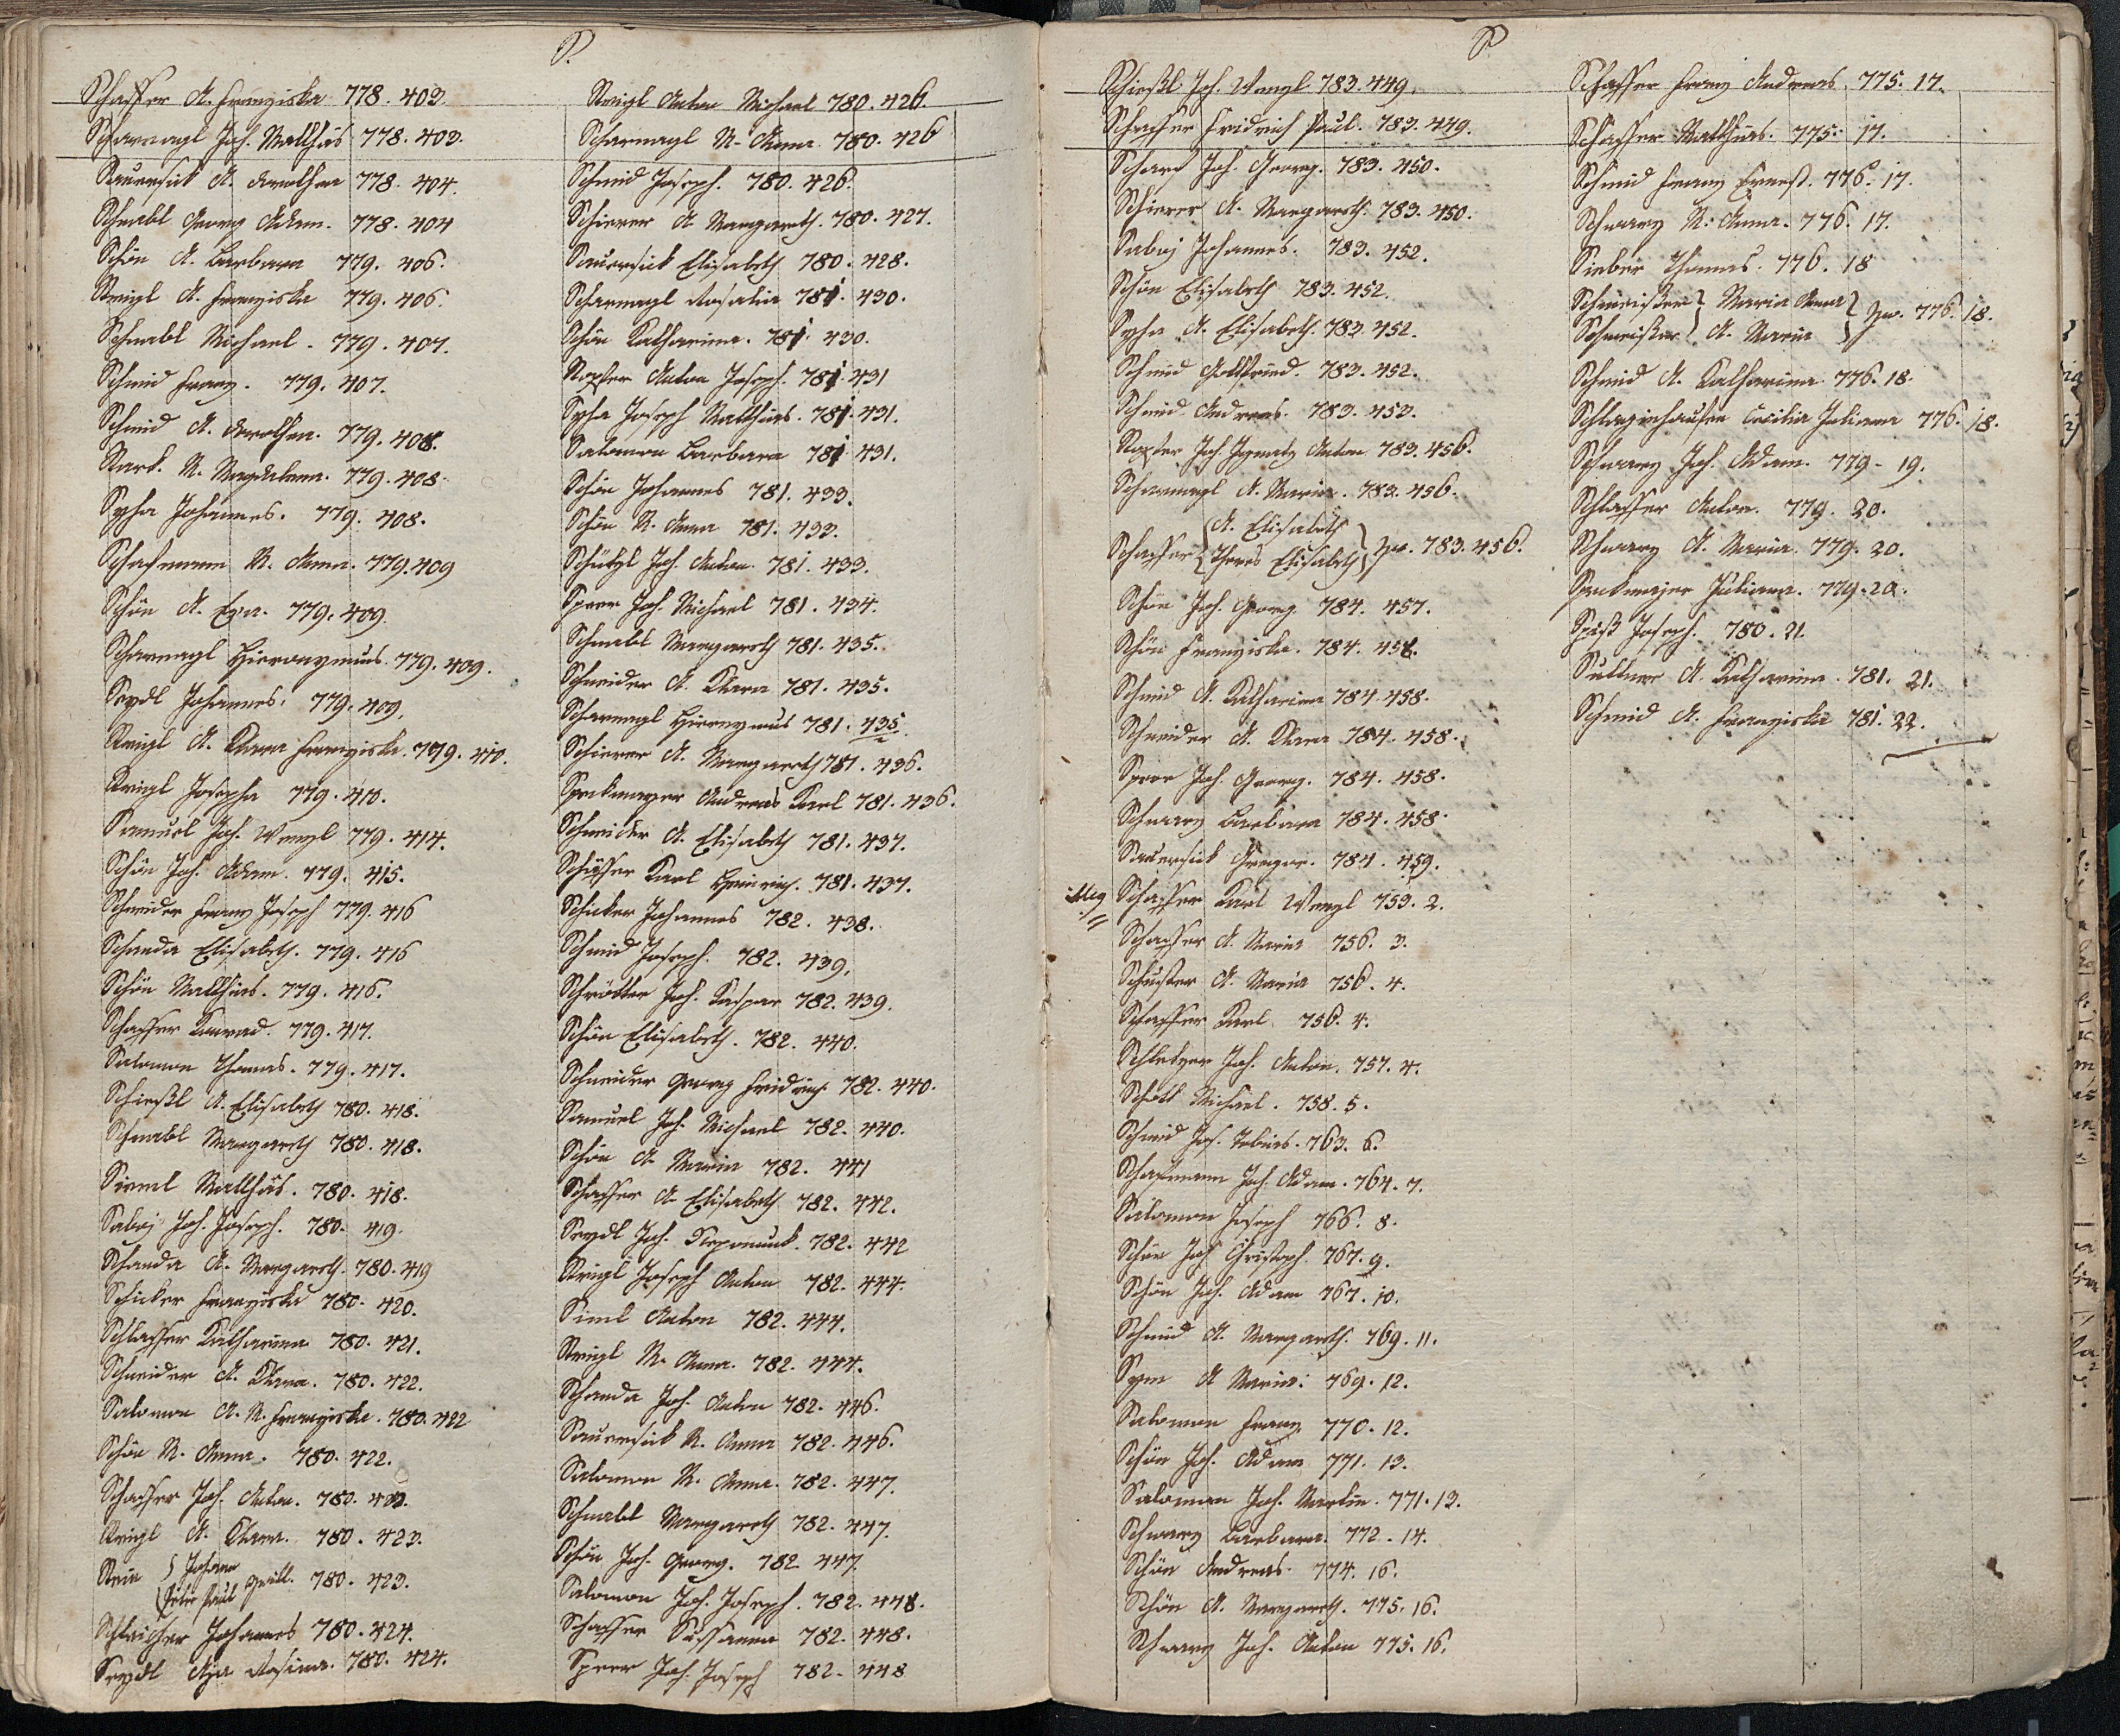 S.
Schaffer A. Franziska 778. 403
Scharnagl Joh. Mathäs 778. 403.
Sauersick A. Dorothea 778. 404.
Schnabl Georg Adam. 778. 404
Schön A. Barbara 779. 406.
Streigl A. Franziska 779. 406.
Schnabl Michael. 779. 407.
Schmid Franz. 779. 407.
Schmid A. Dorothea. 779. 408.
Stark. M. Magdalena. 779. 408.
Spha Johannes. 779. 408.
Schafmann M. Anna. 779. 409
Schön A. Eva. 779. 409.
Scharnagl Hieronymus. 779. 409.
Seydl Johannes. 779. 409.
Streigl A. Klara Franziska. 779. 410.
Streigl Josepha 779. 410.
Samuel Joh. Wenzl 779. 414.
Schön Joh. Adam. 779. 415.
Schneider Franz Joseph 779. 416
Schanda Elisabeth. 779. 416
Schön Matthias. 779. 416.
Schaffer Konrad. 779. 417.
Salomon Thomas. 779. 417.
Schießl A. Elisabeth 780. 418.
Schnabl Margareth 780. 418.
Sieml Matthäs. 780. 418.
Saboj Joh. Joseph. 780. 419.
Schanda A. Margareth. 780. 419
Schicker Franziska 780. 420.
Schlaffer Katharina 780. 421.
Schneider A. Klara. 780. 422.
Salomon A. M. Franziska. 780. 422
Schön M. Anna. 780. 422.
Schaffer Joh. Anton. 780. 422.
Streigl A. Klara. 780. 423.
Stein Johann
Peter Paul Zwill. 780. 423.
Schleicher Johannes 780. 424.
Seydl Rosina. 780. 424.
Streigl Anton Michael 780. 426.
Scharnagl M. Anna 780. 426
Schmid Joseph. 780. 426.
Schierer A. Margareth. 780. 427.
Sauersick Elisabeth 780. 428.
Scharnagl Rosalia 781. 430.
Schön Katharina. 781. 430.
Stopfer Anton Joseph. 781. 431
Spha Joseph Matthias. 781. 431.
Salomon Barbara 781. 431.
Schön Johannes 781. 433.
Schön M. Anna 781. 433.
Schützl Joh. Anton. 781. 433.
Speer Joh. Michael 781. 434.
Schnabl Margareth 781. 435.
Schneider A. Klara 781. 435.
Scharnagl Hieronymus 781. 435.
Schierer A. Margareth 781. 436.
Speckmayer Andreas Karl 781. 436.
Schneider A. Elisabeth 781. 437.
Schaffer Karl Heinrich. 781. 437.
Schicker Johannes 782. 438.
Schmid Joseph. 782. 439.
Schrötter Joh. Kaspar 782. 439.
Schön Elisabeth. 782. 440.
Schneider Georg Fridrich. 782. 440.
Samuel Joh. Michael 782. 440.
Schön A. Maria 782. 441
Schaffer A. Elisabeth 782. 442.
Seydl Joh. Nepomuck. 782. 442
Streigl Joseph Anton 782. 444.
Siml Anton 782. 444.
Streigl M. Anna. 782. 444.
Schanda Joh. Anton 782. 446.
Sauersick M. Anna 782. 446.
Salomon M. Anna. 782. 447.
Schnabl Margareth 782. 447.
Schön Joh. Georg. 782. 447.
Salomon Joh. Joseph. 782. 448.
Schaffer Sussanna 782. 448.
Speer Joh. Joseph 782. 448
S
Schießl Joh. Wenzl 783. 449.
Schaffer Fridrich Paul. 783. 449.
Scharf Joh. Georg. 783. 450.
Schierer A. Margareth. 783. 450.
Saboj Johannes. 783. 452.
Schön Elisabeth 783. 452.
Spha A. Elisabeth. 783. 452.
Schmid Gottfried. 783. 452.
Schmid Andreas. 783. 453.
Stopfer Joh. Ignatz Anton 783. 456.
Scharnagl A. Maria. 783. 456.
A. Elisabeth
Schaffer Theres Elisabeth Zw. 783. 456.
Schön Joh. Georg 784. 457.
Schön Franziska. 784. 458.
Schmid A. Katharina 784. 458.
Schneider A. Klara 784. 458.
Speer Joh. Georg. 784. 458.
Schwarz Barbara 784. 458.
Sauersick Gregor. 784. 459.
Schaffer Karl Wenzl 753. 2.
Schaffer A. Maria 756. 3.
Schuster A. Maria 756. 4.
Schaffer Karl 756. 4.
Joh. Anton. 757. 4.
Schott Michael. 758. 5.
Schmid Jos. Tobias. 763. 6.
Schafmann Joh. Adam. 764. 7.
Salomon Joseph 766. 8.
Schön Joh. Christoph. 767. 9.
Schön Joh. Adam 767. 10.
Schmid A. Margareth. 769. 11.
A. Maria. 769. 12.
Salomon Franz 770. 12.
Schön Joh. Adam 771. 13.
Salomon Joh. Martin. 771. 13.
Schwarz Barbara. 772. 14.
Schön Andreas. 774. 16.
Schön A. Margareth. 775. 16.
Schwarz Joh. Anton 775. 16.
Schaffer Franz Andreas. 775. 17.
Schaffer Matthias. 775. 17.
Schmid Franz Ernest. 776. 17.
Schwarz M. Anna. 776. 17.
Sieber Thomas. 776. 18
Schmeisser Maria Anna
Schmeisser A. Maria Zw. 776. 18.
Schmid A. Katharina 776. 18.
Schlagenhaufen Cecilia Juliana 776. 18.
Schwarz Joh. Adam. 779. 19.
Schlaffer Anton. 779. 20.
Schwarz A. Maria. 779. 20.
Speckmajer Juliana. 779. 20.
Spiß Joseph. 780. 21.
Suttner A. Katharina. 781. 21.
Schmid A. Franziska 781. 22.